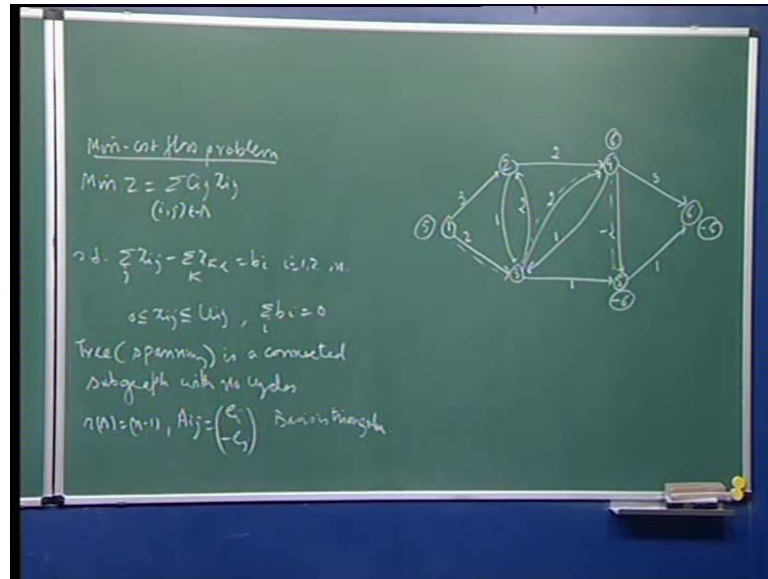 Min-cost flow problem
Min Z = Σ Cij xij
(i,j)∈A
s.t. Σ xij - Σ xki = bi i=1,2,..n.
j K
0≤ xij ≤ Uij , Σ bi = 0
i
Tree (spanning) is a connected
subgraph with no cycles
r(A)=(n-1), Aij = (ei -ej) Basis is triangular.
6
2 2 4
3 3
5 1 1 2 2 6 -5
2 1 -2 1
3 1 5
-6